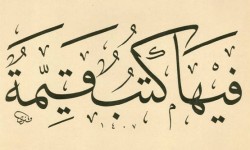 فِيهَا كُتُبٌ قَيِّمَةٌ
١٤٠٧